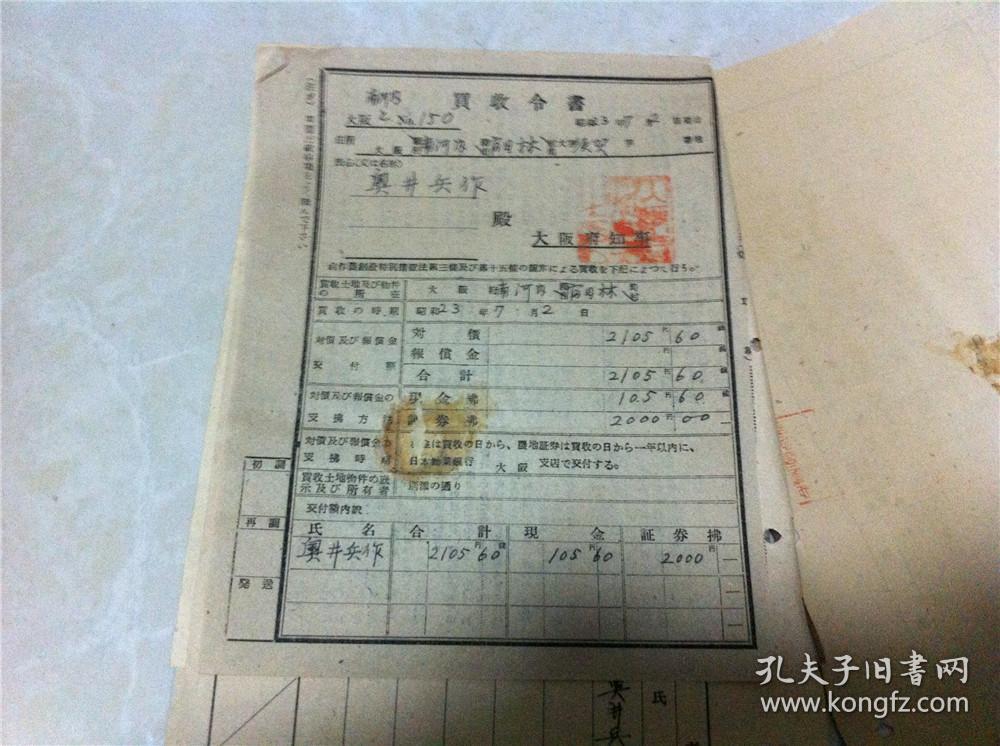 買收令書
大阪 2 No. 150
昭和23年7月2日
住所 大阪 南河内 富田林
氏名(又は名称)
奥井兵作
殿
大阪府知事
自作農創設特別措置法第三條及び第十五條の規定による買收を下記によつて行う。
買收土地及び物件の所在 大阪 南河内 富田林
買收の時期 昭和23年7月2日
対價及び報償金 対價 2105円60銭
報償金 円 銭
交付額 合計 2105 60
対價及び報償金の 現金拂 105 60
支拂方法 証券拂 2000 00
対價及び報償金の は買收の日から、農地証券は買收の日から一年以内に、
支拂時期 日本勧業銀行 大阪 支店で交付する。
買收土地物件の表示及び所有者 別紙の通り
交付額内訳
氏名 合計 現金 証券拂
奥井兵作 2105円60銭 105円60 2000円
初調
再調
発送
氏
奥井兵
孔夫子旧書网
www.kongfz.com